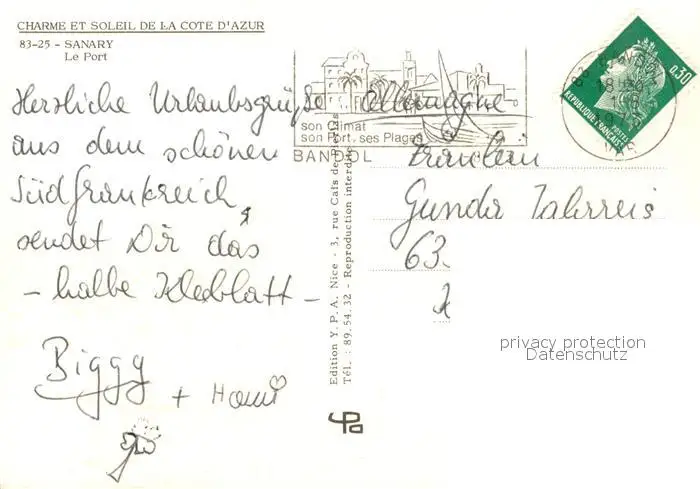 CHARME ET SOLEIL DE LA COTE D'AZUR
83-25 - SANARY
Le Port
Herzliche Urlaubsgrüße
aus dem schönen
Südfrankreich
sendet Dir das
- halbe Kleeblatt -
Biggy + Hanni
son climat
son Port, ses Plages
BANDOL
Edition Y. P. A. Nice - 3, rue Caïs de Pierlas
Tél. : 89.54.32 - Reproduction interdite
Allemagne
Fräulein
Gunda Tahrreis
63
0,30
REPUBLIQUE FRANÇAISE
POSTES
VAR
privacy protection
Datenschutz